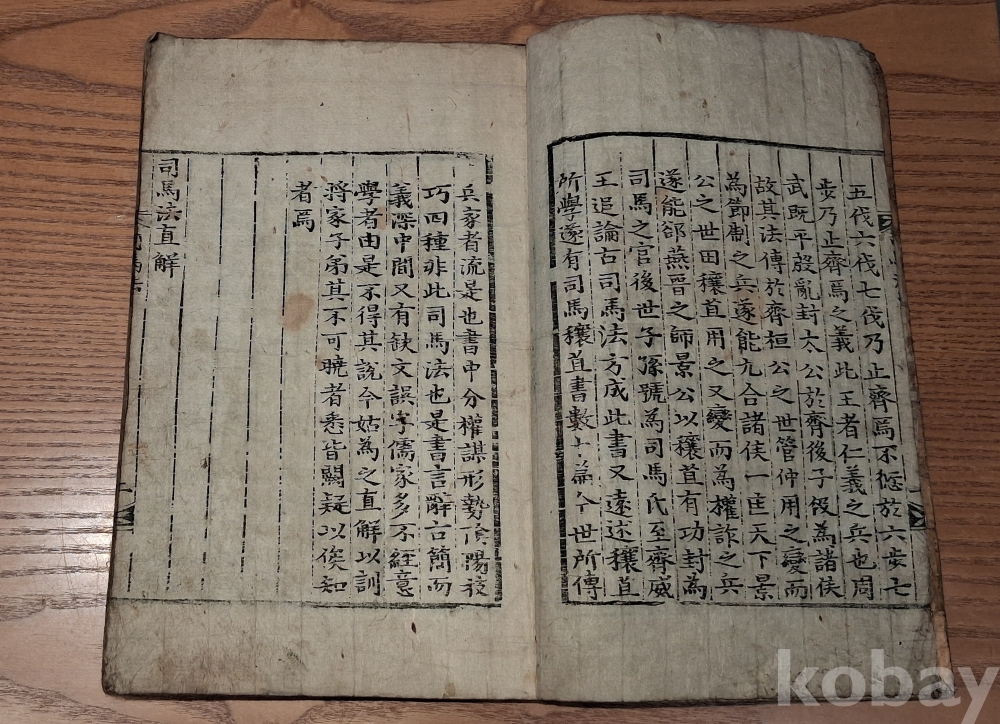 五伐六伐七伐乃止齊焉不愆於六步七
步乃止齊焉之義此王者仁義之兵也周
武既平殷亂封太公於齊後子伋為諸侯
故其法傳於齊桓公之世管仲用之變而
為節制之兵遂能九合諸侯一匡天下景
公之世田穰苴用之又變而為權詐之兵
遂能郤燕晉之師景公以穰苴有功封為
司馬之官後世子孫號為司馬氏至齊威
王追論古司馬法方成此書又遠述穰苴
所學遂有司馬穰苴書數十篇今世所傳
兵家者流是也書中分權謀形勢陰陽技
巧四種非此司馬法也是書言辭古簡而
義深中間又有缺文誤字儒家多不經意
學者由是不得其說今姑為之直解以訓
將家子弟其不可曉者悉皆闕疑以俟知
者焉
司馬法直解
kobay